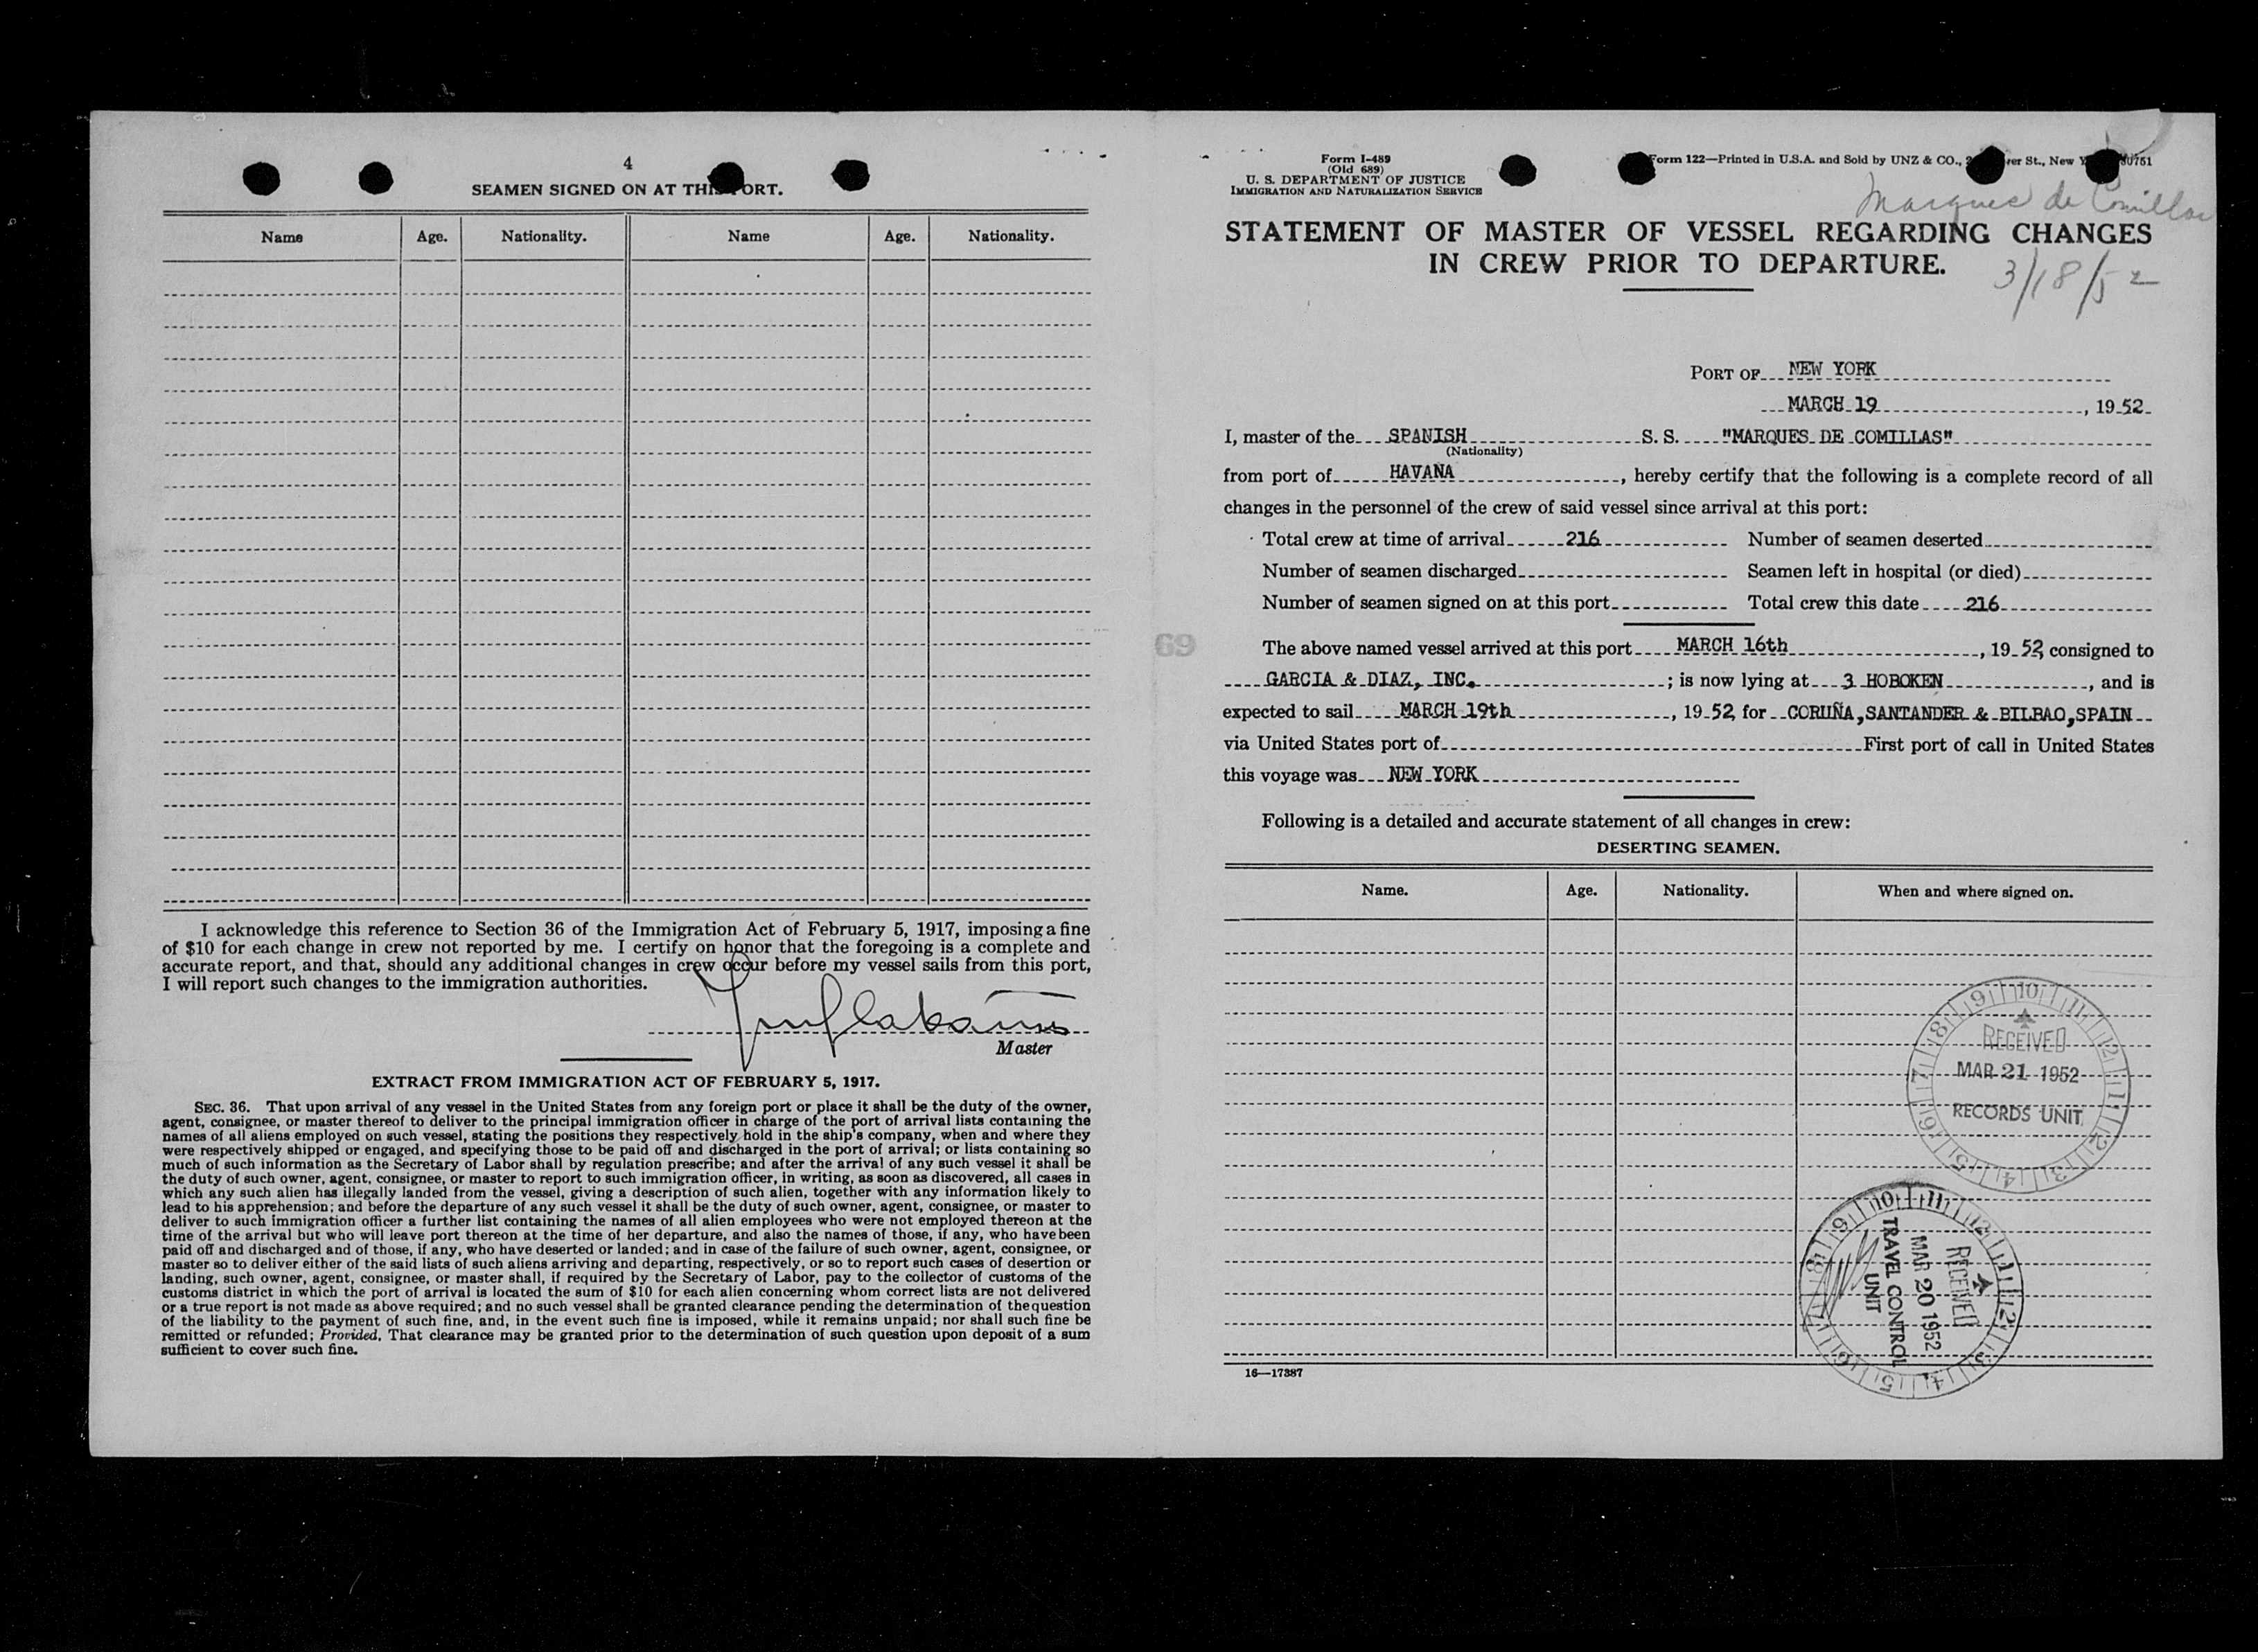 4
SEAMEN SIGNED ON AT THIS PORT.
Name Age. Nationality. Name Age. Nationality.
I acknowledge this reference to Section 36 of the Immigration Act of February 5, 1917, imposing a fine
of $10 for each change in crew not reported by me. I certify on honor that the foregoing is a complete and
accurate report, and that, should any additional changes in crew occur before my vessel sails from this port,
I will report such changes to the immigration authorities.
Master
EXTRACT FROM IMMIGRATION ACT OF FEBRUARY 5, 1917.
SEC. 36. That upon arrival of any vessel in the United States from any foreign port or place it shall be the duty of the owner,
agent, consignee, or master thereof to deliver to the principal immigration officer in charge of the port of arrival lists containing the
names of all aliens employed on such vessel, stating the positions they respectively hold in the ship's company, when and where they
were respectively shipped or engaged, and specifying those to be paid off and discharged in the port of arrival; or lists containing so
much of such information as the Secretary of Labor shall by regulation prescribe; and after the arrival of any such vessel it shall be
the duty of such owner, agent, consignee, or master to report to such immigration officer, in writing, as soon as discovered, all cases in
which any such alien has illegally landed from the vessel, giving a description of such alien, together with any information likely to
lead to his apprehension; and before the departure of any such vessel it shall be the duty of such owner, agent, consignee, or master to
deliver to such immigration officer a further list containing the names of all alien employees who were not employed thereon at the
time of the arrival but who will leave port thereon at the time of her departure, and also the names of those, if any, who have been
paid off and discharged and of those, if any, who have deserted or landed; and in case of the failure of such owner, agent, consignee, or
master so to deliver either of the said lists of such aliens arriving and departing, respectively, or so to report such cases of desertion or
landing, such owner, agent, consignee, or master shall, if required by the Secretary of Labor, pay to the collector of customs of the
customs district in which the port of arrival is located the sum of $10 for each alien concerning whom correct lists are not delivered
or a true report is not made as above required; and no such vessel shall be granted clearance pending the determination of the question
of the liability to the payment of such fine, and, in the event such fine is imposed, while it remains unpaid; nor shall such fine be
remitted or refunded; Provided, That clearance may be granted prior to the determination of such question upon deposit of a sum
sufficient to cover such fine.
69
Form I-489
(Old 689)
U. S. DEPARTMENT OF JUSTICE
IMMIGRATION AND NATURALIZATION SERVICE
Form 122—Printed in U.S.A. and Sold by UNZ & CO., St., New
Marques de Comillas
STATEMENT OF MASTER OF VESSEL REGARDING CHANGES
IN CREW PRIOR TO DEPARTURE.
3/18/52
PORT OF NEW YORK
MARCH 19, 1952
I, master of the SPANISH S. S. "MARQUES DE COMILLAS"
(Nationality)
from port of HAVANA, hereby certify that the following is a complete record of all
changes in the personnel of the crew of said vessel since arrival at this port:
Total crew at time of arrival 216 Number of seamen deserted
Number of seamen discharged Seamen left in hospital (or died)
Number of seamen signed on at this port Total crew this date 216
The above named vessel arrived at this port MARCH 16th, 1952, consigned to
GARCIA & DIAZ, INC.; is now lying at 3 HOBOKEN, and is
expected to sail MARCH 19th, 1952, for CORUÑA, SANTANDER & BILBAO, SPAIN
via United States port of First port of call in United States
this voyage was NEW YORK
Following is a detailed and accurate statement of all changes in crew:
DESERTING SEAMEN.
Name. Age. Nationality. When and where signed on.
9 10 11 12 1 2 3 4 5 6 7 8
RECEIVED
MAR 21 1952
RECORDS UNIT
9 10 11 12 1 2 3 4 5 6 7 8
RECEIVED
MAR 20 1952
TRAVEL CONTROL
UNIT
16—17387